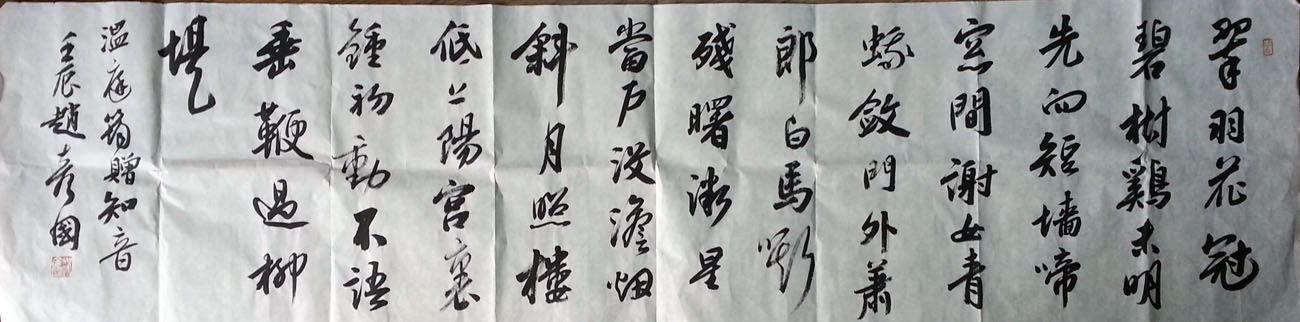 翠羽花冠
碧樹鷄未明
先向短墻啼
窓間謝女青
蛾斂門外蕭
郎白馬嘶
殘曙微星
當戶沒澹烟
斜月照樓
低上陽宮裏
鍾初動不語
垂鞭過柳
堤
溫庭筠贈知音
壬辰趙彥國